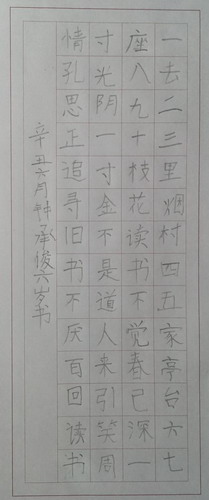 一去二三里烟村四五家亭台六七
座八九十枝花读书不觉春已深一
寸光阴一寸金不是道人来引笑周
情孔思正追寻旧书不厌百回读书
辛丑六月钟承俊六岁书